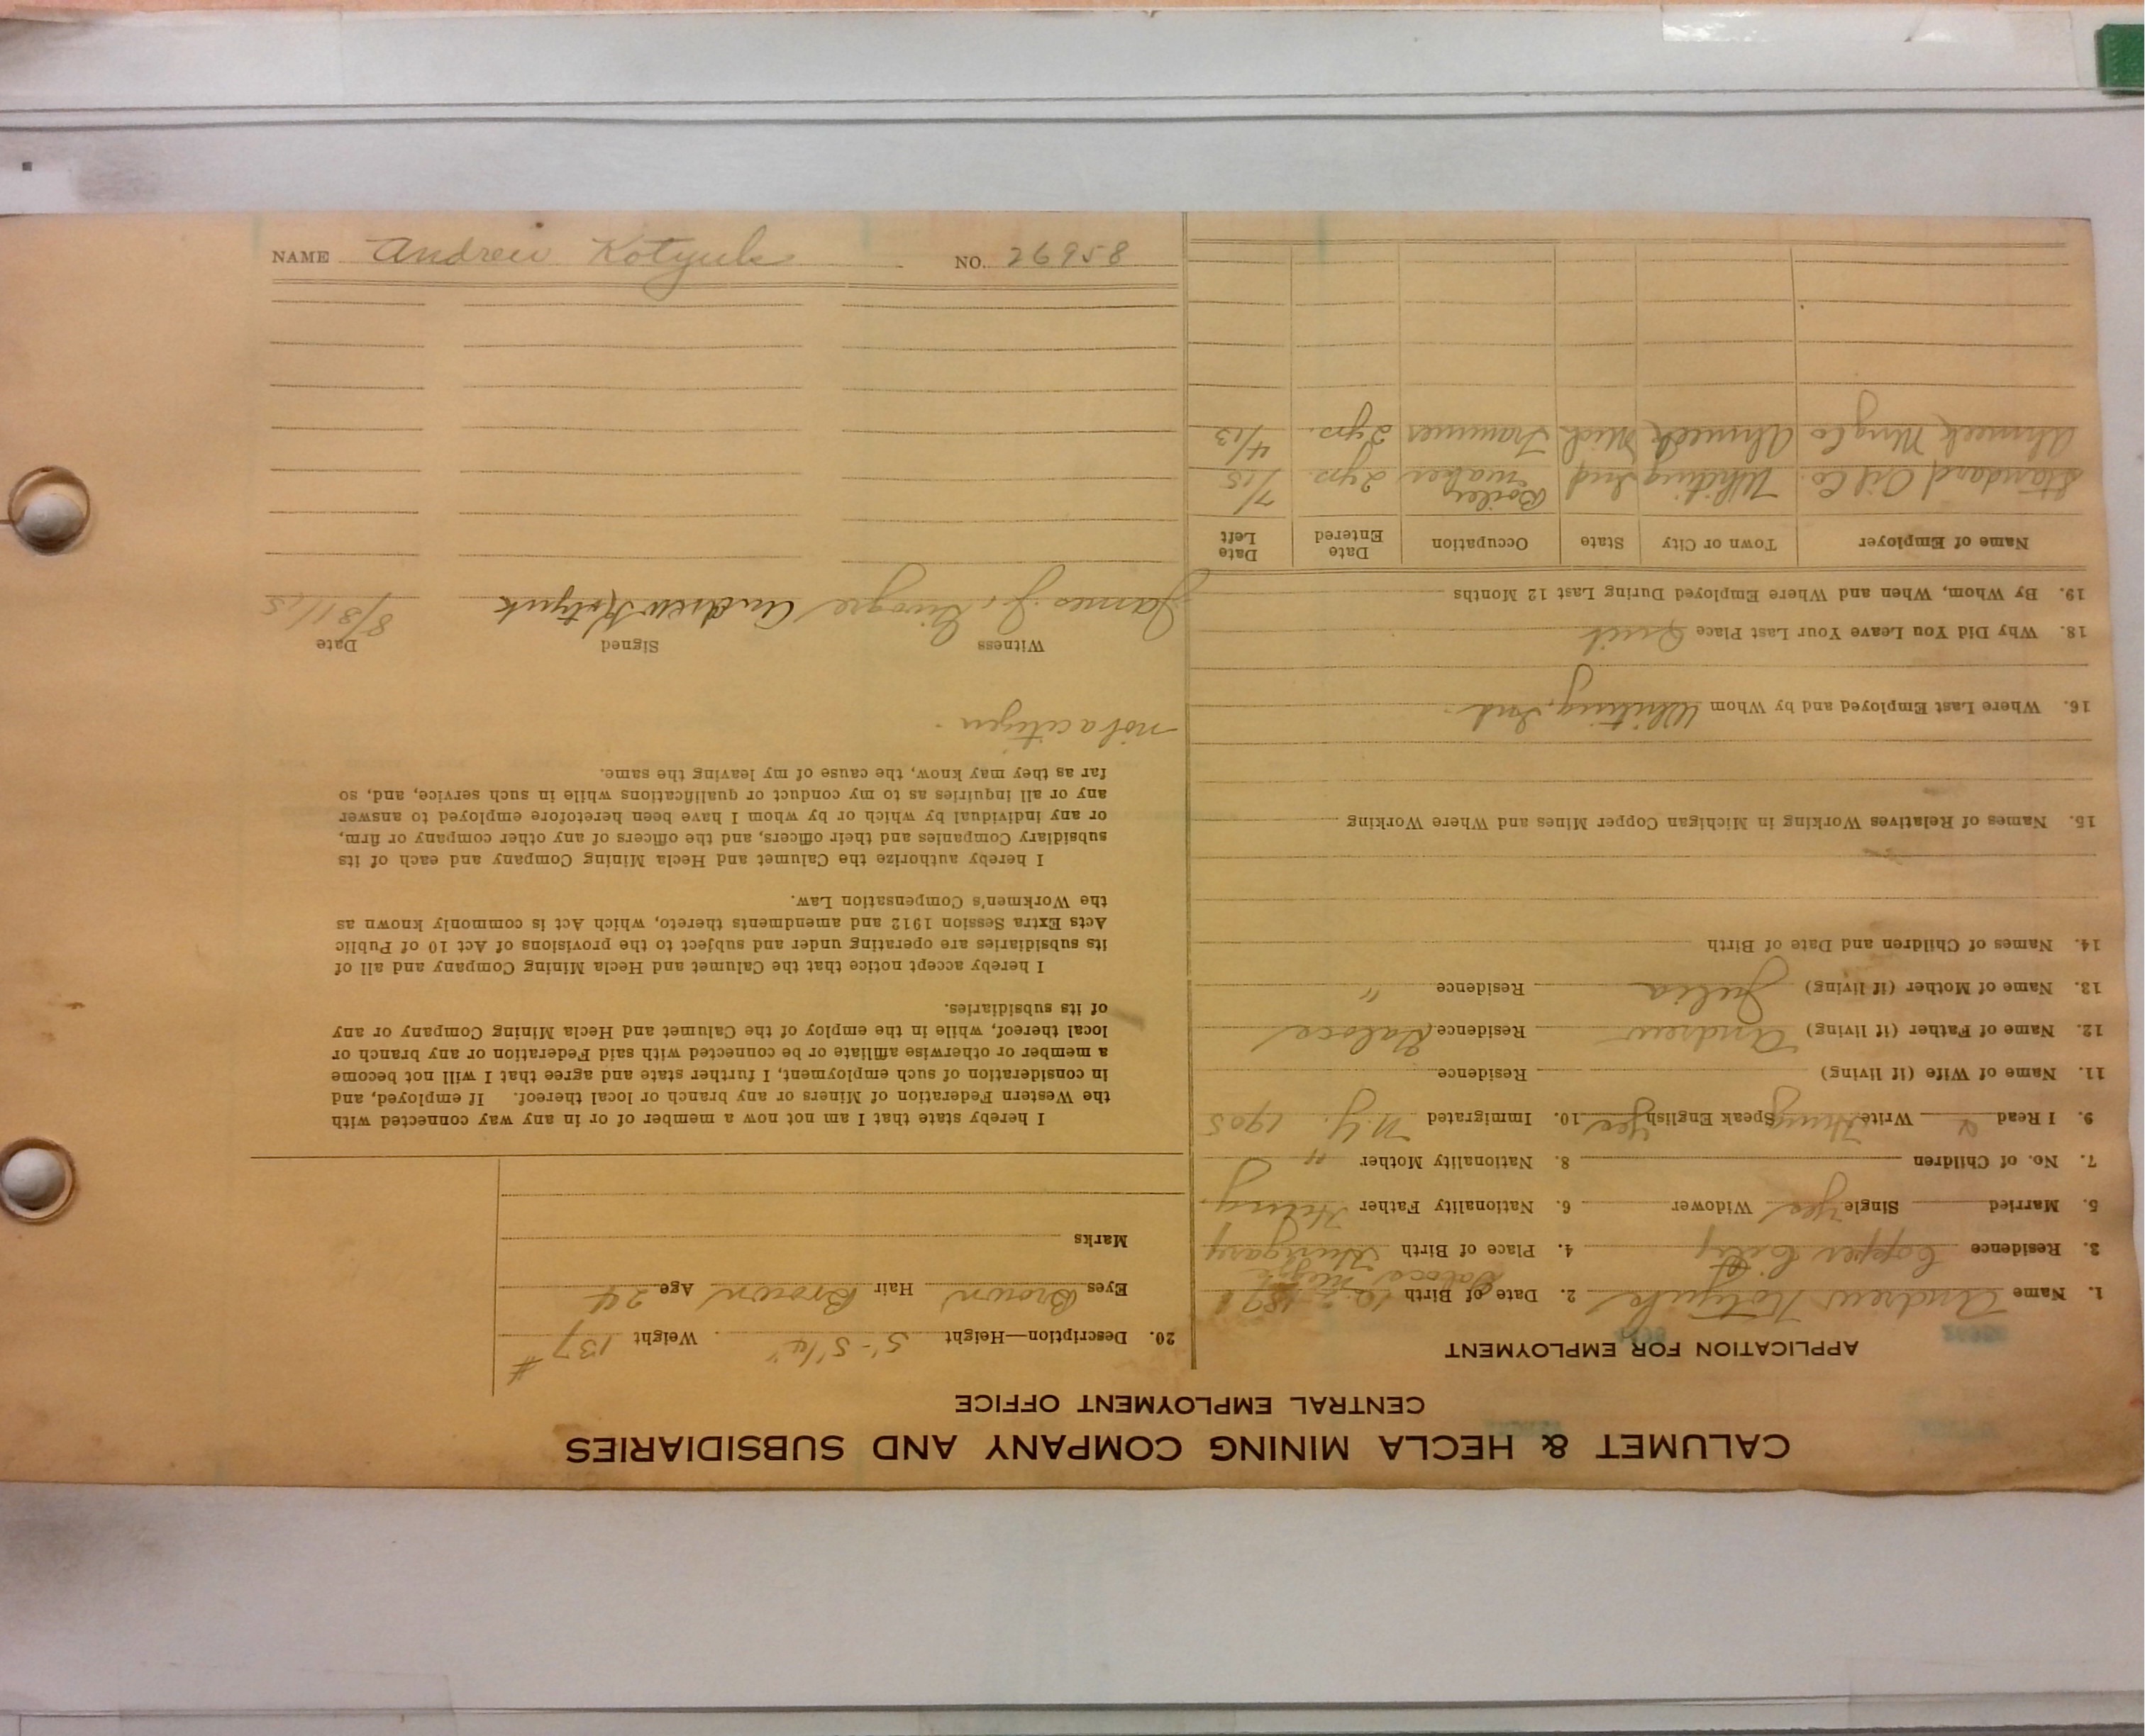 CALUMET & HECLA MINING COMPANY AND SUBSIDIARIES
CENTRAL EMPLOYMENT OFFICE
APPLICATION FOR EMPLOYMENT
1. Name Andrew Kotyuk 2. Date of Birth
3. Residence Copper City 4. Place of Birth Hungary
5. Married Single Yes Widower 6. Nationality Father Hung.
7. No. of Children 8. Nationality Mother "
9. I Read & Write Hung Speak English Yes 10. Immigrated N.Y. 1905
11. Name of Wife (if living) Residence
12. Name of Father (if living) Andrew Residence
13. Name of Mother (if living) Julia Residence "
14. Names of Children and Date of Birth
15. Names of Relatives Working in Michigan Copper Mines and Where Working
16. Where Last Employed and by Whom Whiting, Ind
18. Why Did You Leave Your Last Place Quit
19. By Whom, When and Where Employed During Last 12 Months
Name of Employer Town or City State Occupation Date Entered Date Left
Standard Oil Co. Whiting Ind Boiler maker 2 yrs. 7/15
Ahmeek Mng Co Ahmeek Mich Trammer 2 yrs. 4/13
20. Description—Height 5'-5¼" Weight 137#
Eyes Brown Hair Brown Age 24
Marks
I hereby state that I am not now a member of or in any way connected with
the Western Federation of Miners or any branch or local thereof. If employed, and
in consideration of such employment, I further state and agree that I will not become
a member or otherwise affiliate or be connected with said Federation or any branch or
local thereof, while in the employ of the Calumet and Hecla Mining Company or any
of its subsidiaries.
I hereby accept notice that the Calumet and Hecla Mining Company and all of
its subsidiaries are operating under and subject to the provisions of Act 10 of Public
Acts Extra Session 1912 and amendments thereto, which Act is commonly known as
the Workmen's Compensation Law.
I hereby authorize the Calumet and Hecla Mining Company and each of its
subsidiary Companies and their officers, and the officers of any other company or firm,
or any individual by which or by whom I have been heretofore employed to answer
any or all inquiries as to my conduct or qualifications while in such service, and, so
far as they may know, the cause of my leaving the same.
not a citizen.
Witness Signed Date
James J. Andrew Kotyuk 8/31/15
NAME Andrew Kotyuk NO. 26958